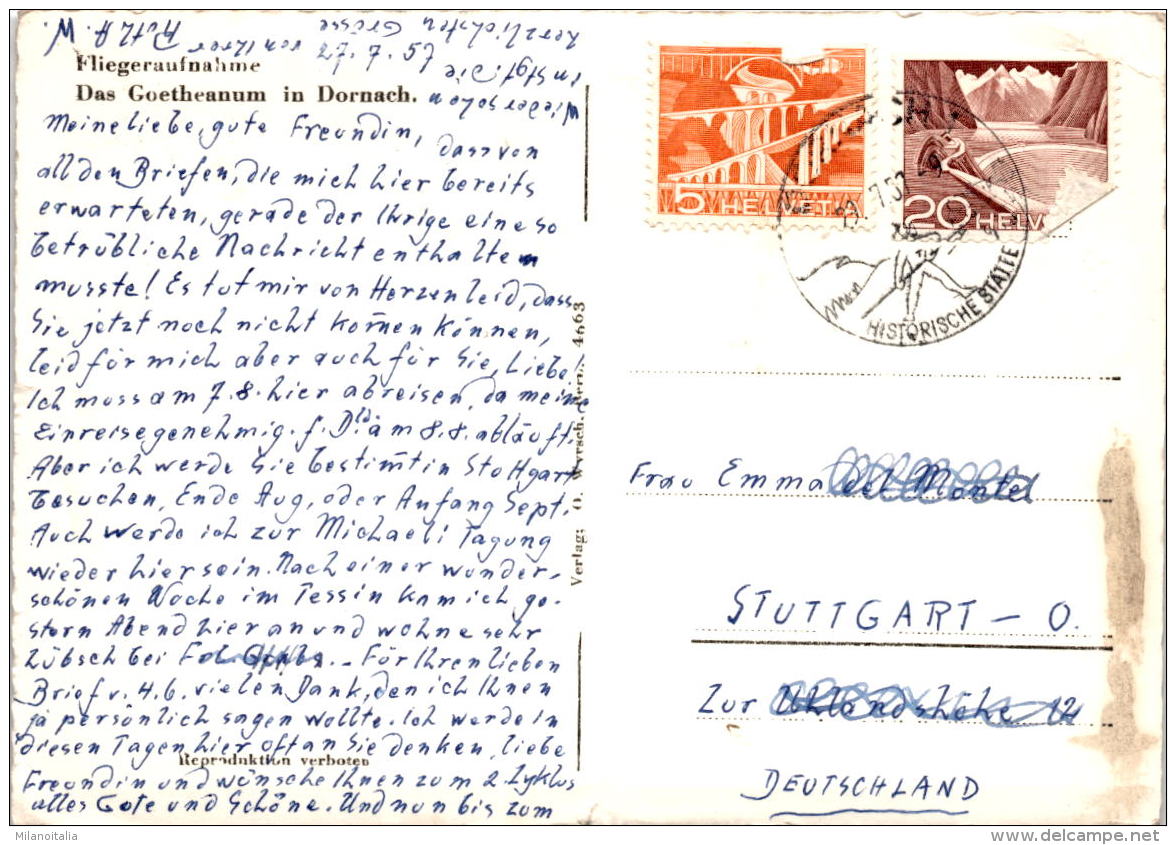 Fliegeraufnahme
Das Goetheanum in Dornach.
27.7.57
Meine liebe, gute Freundin, dass von
all den Briefen, die mich hier bereits
erwarteten, gerade der Ihrige eine so
betrübliche Nachricht enthalten
musste! Es tut mir von Herzen leid, dass
Sie jetzt noch nicht kom̄en können,
leid für mich aber auch für Sie, Liebe!
Ich muss am 7.8. hier abreisen, da meine
Einreisegenehmig. f. Dld. am 8.8. abläuft.
Aber ich werde Sie bestim̄t in Stuttgart
besuchen, Ende Aug. oder Anfang Sept.
Auch werde ich zur Michaeli Tagung
wieder hier sein. Nach einer wunder-
schönen Woche im Tessin kam ich ge-
stern Abend hier an und wohne sehr
hübsch bei Frl.
. – Für Ihren lieben
Brief v. 4.6. vielen Dank, den ich Ihnen
ja persönlich sagen wollte. Ich werde in
diesen Tagen hier oft an Sie denken, liebe
Freundin und wünsche Ihnen zum 2. Zyklus
alles Gute und Schöne. Und nun bis zum
Wiedersehen
innigst die
herzlichsten Grüsse
von Ihrer
A. W.
Reproduktion verboten
Verlag: O. Wyrsch, Bern. 4663
5 HELVETIA
20 HELV
HISTORISCHE STÄTTE
Frau Emma del Montel
STUTTGART – O.
Zur Uhlandshöhe 12
DEUTSCHLAND
Milanoitalia
www.delcampe.net